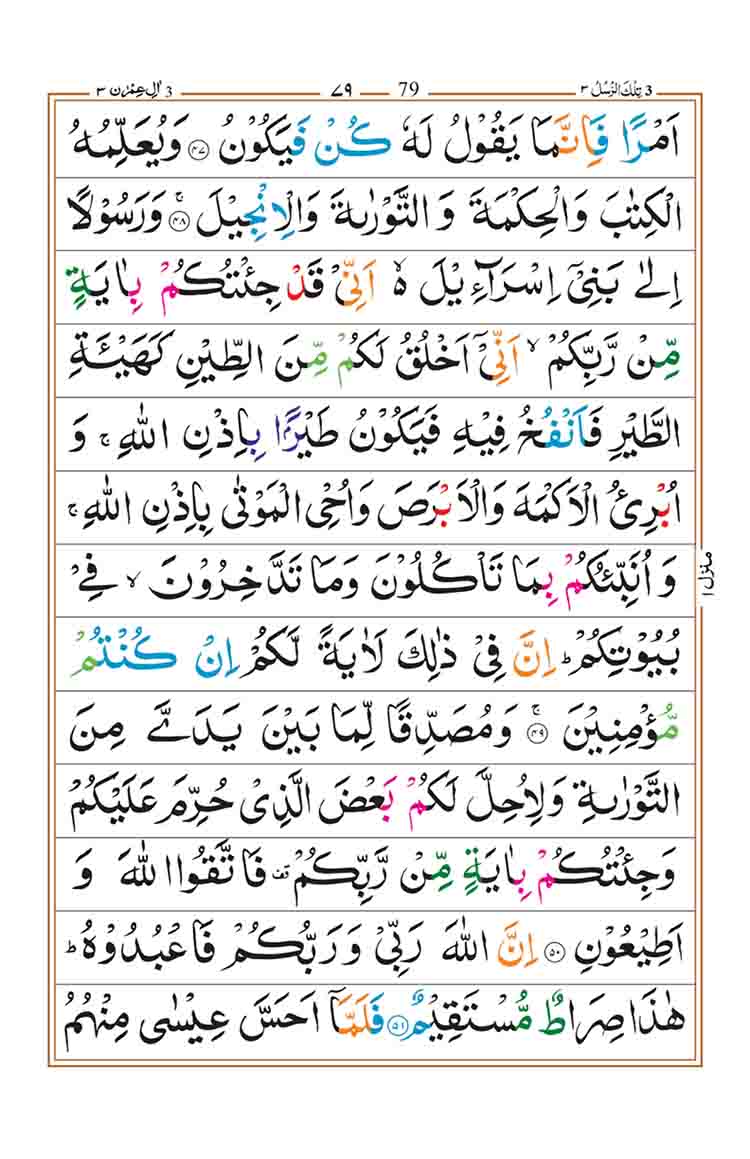 3 تِلْكَ الرُّسُلُ ٣ 79 ٧٩ 3 اٰلِ عِمْرٰن ٣
اَمْرًا فَاِنَّمَا يَقُوْلُ لَهٗ كُنْ فَيَكُوْنُ ﴿۴۷﴾ وَيُعَلِّمُهُ
الْكِتٰبَ وَالْحِكْمَةَ وَ التَّوْرٰىةَ وَالْاِنْجِيْلَ ۚ﴿۴۸﴾ وَرَسُوْلًا
اِلٰى بَنِيْۤ اِسْرَآءِيْلَ ۙ۬ اَنِّيْ قَدْ جِئْتُكُمْ بِاٰيَةٍ
مِّنْ رَّبِّكُمْ ۙ اَنِّيْۤ اَخْلُقُ لَكُمْ مِّنَ الطِّيْنِ كَهَيْـَٔةِ
الطَّيْرِ فَاَنْفُخُ فِيْهِ فَيَكُوْنُ طَيْرًۢا بِاِذْنِ اللّٰهِ ۚ وَ
اُبْرِئُ الْاَكْمَهَ وَالْاَبْرَصَ وَاُحْيِ الْمَوْتٰى بِاِذْنِ اللّٰهِ ۚ
وَ اُنَبِّئُكُمْ بِمَا تَاْكُلُوْنَ وَمَا تَدَّخِرُوْنَ ۙ فِيْ
بُيُوْتِكُمْ ؕ اِنَّ فِيْ ذٰلِكَ لَاٰيَةً لَّكُمْ اِنْ كُنْتُمْ
مُّؤْمِنِيْنَ ۚ﴿۴۹﴾ وَمُصَدِّقًا لِّمَا بَيْنَ يَدَيَّ مِنَ
التَّوْرٰىةِ وَلِاُحِلَّ لَكُمْ بَعْضَ الَّذِيْ حُرِّمَ عَلَيْكُمْ
وَجِئْتُكُمْ بِاٰيَةٍ مِّنْ رَّبِّكُمْ ۟ قف فَاتَّقُوا اللّٰهَ وَ
اَطِيْعُوْنِ ﴿۵۰﴾ اِنَّ اللّٰهَ رَبِّيْ وَرَبُّكُمْ فَاعْبُدُوْهُ ؕ
هٰذَا صِرَاطٌ مُّسْتَقِيْمٌ ﴿۵۱﴾ فَلَمَّاۤ اَحَسَّ عِيْسٰى مِنْهُمُ
منزل ١